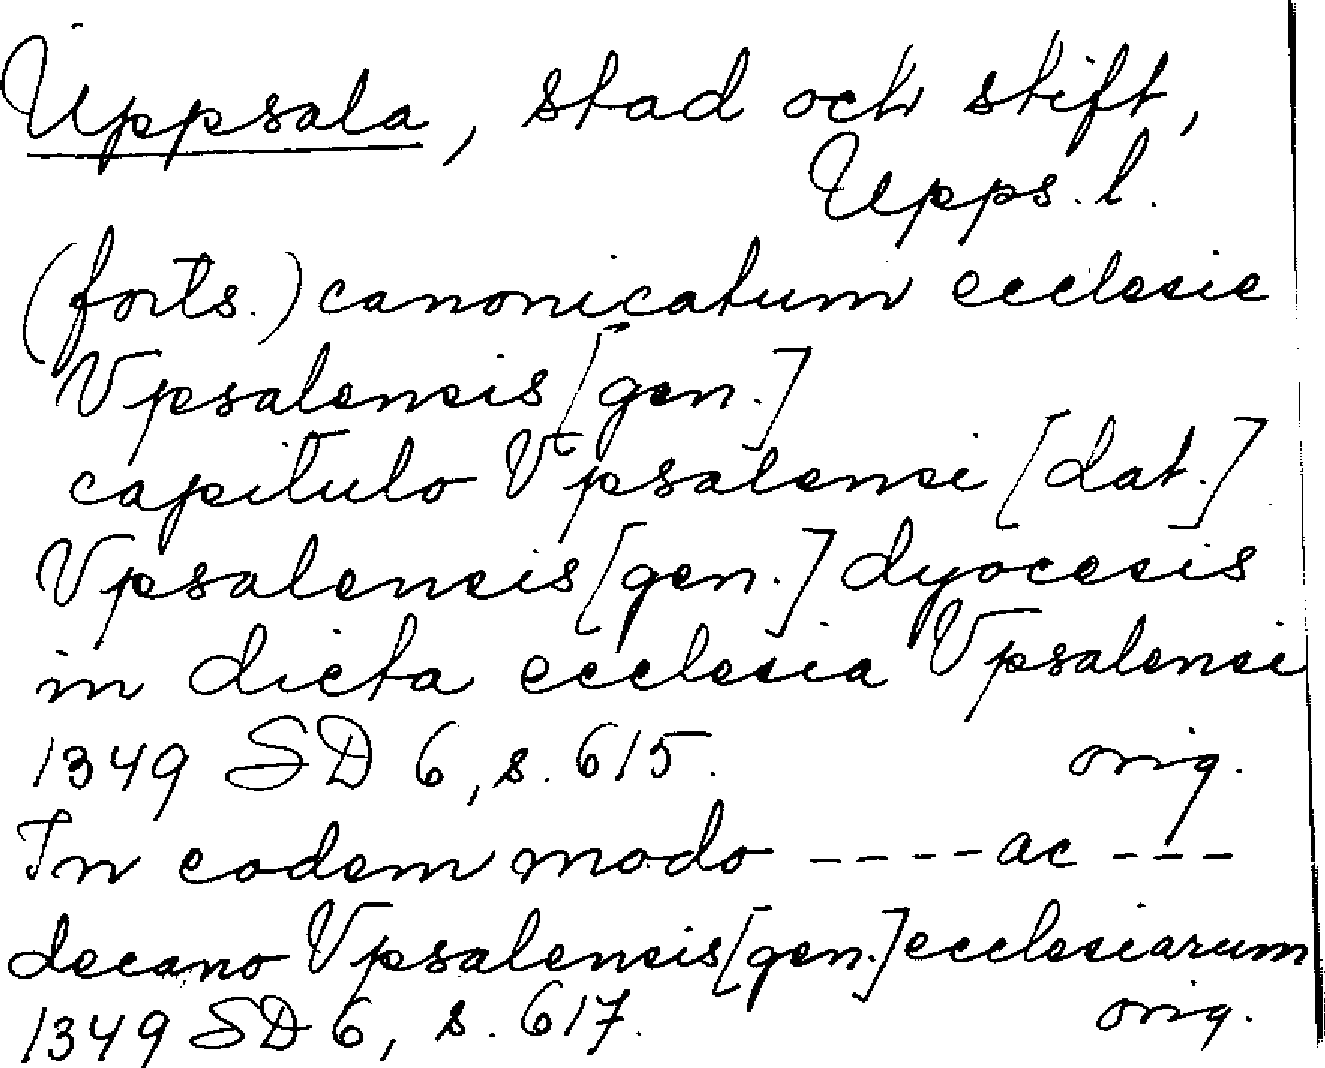 Uppsala, stad och stift,
Upps. l.
(forts.) canonicatum ecclesie
Vpsalensis [gen.]
capitulo Vpsalensi [dat.]
Vpsalensis [gen.] dyocesis
in dicta ecclesia Vpsalensi
1349 SD 6, s. 615. orig.
In eodem modo ---- ac ---
decano Vpsalensis [gen.] ecclesiarum
1349 SD 6, s. 617. orig.